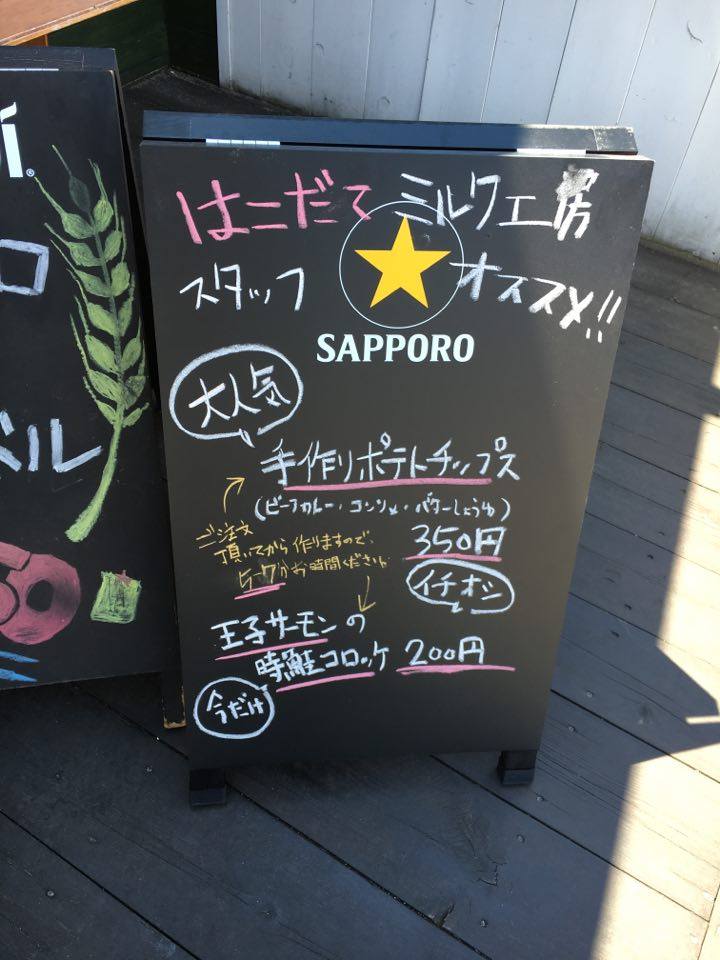 はこだてミルク工房
スタッフ オススメ!!
SAPPORO
大人気
手作りポテトチップス
(ビーフカレー・コンソメ・バターしょうゆ)
350円
ご注文
頂いてから作りますので、
5~7分お時間ください。
イチオシ
王子サーモンの
時鮭コロッケ 200円
今だけ
ロ
ベル